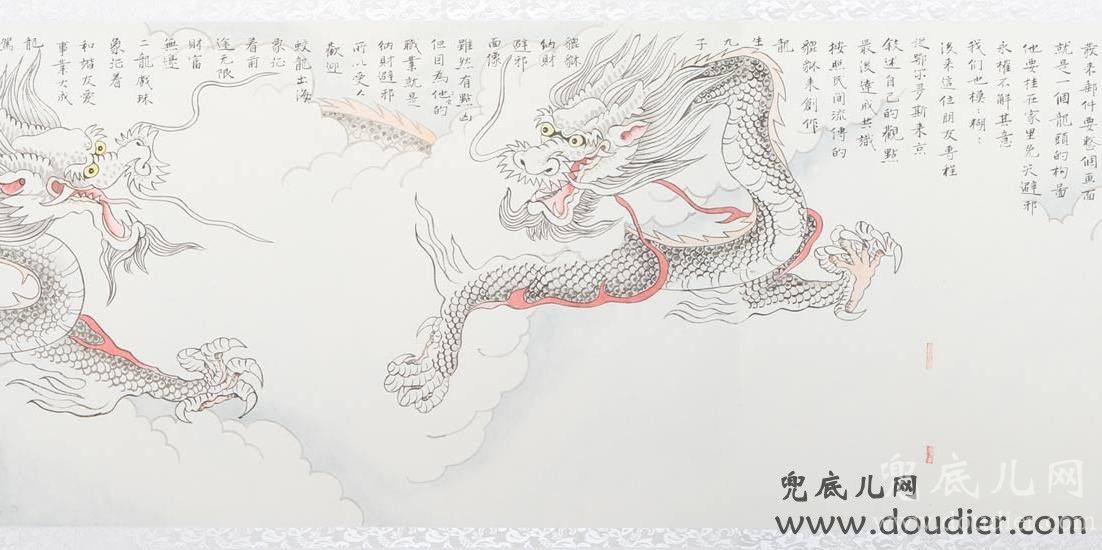 發來部件要整個画面
就是一個龍頭的构圖
他要挂在家里免灾避邪
永權不解其意
我们也模:糊:
後来這位朋友專程
從鄂尔多斯来京
叙述自己的觀點
最後達成共識
按照民间流傳的
貔貅来創作
龍
生
九
子
貔貅
納財
避邪
面像
雖然有點凶
但因為他的
職業就是
納財避邪
所以受人
歡迎
蛟龍出海
象征
着前
途无限
財富
無邊
二龍戲珠
象征着
和谐友愛
事業大成
龍
兜底儿网
www.doudier.com
兜底儿网
www.doudier.com